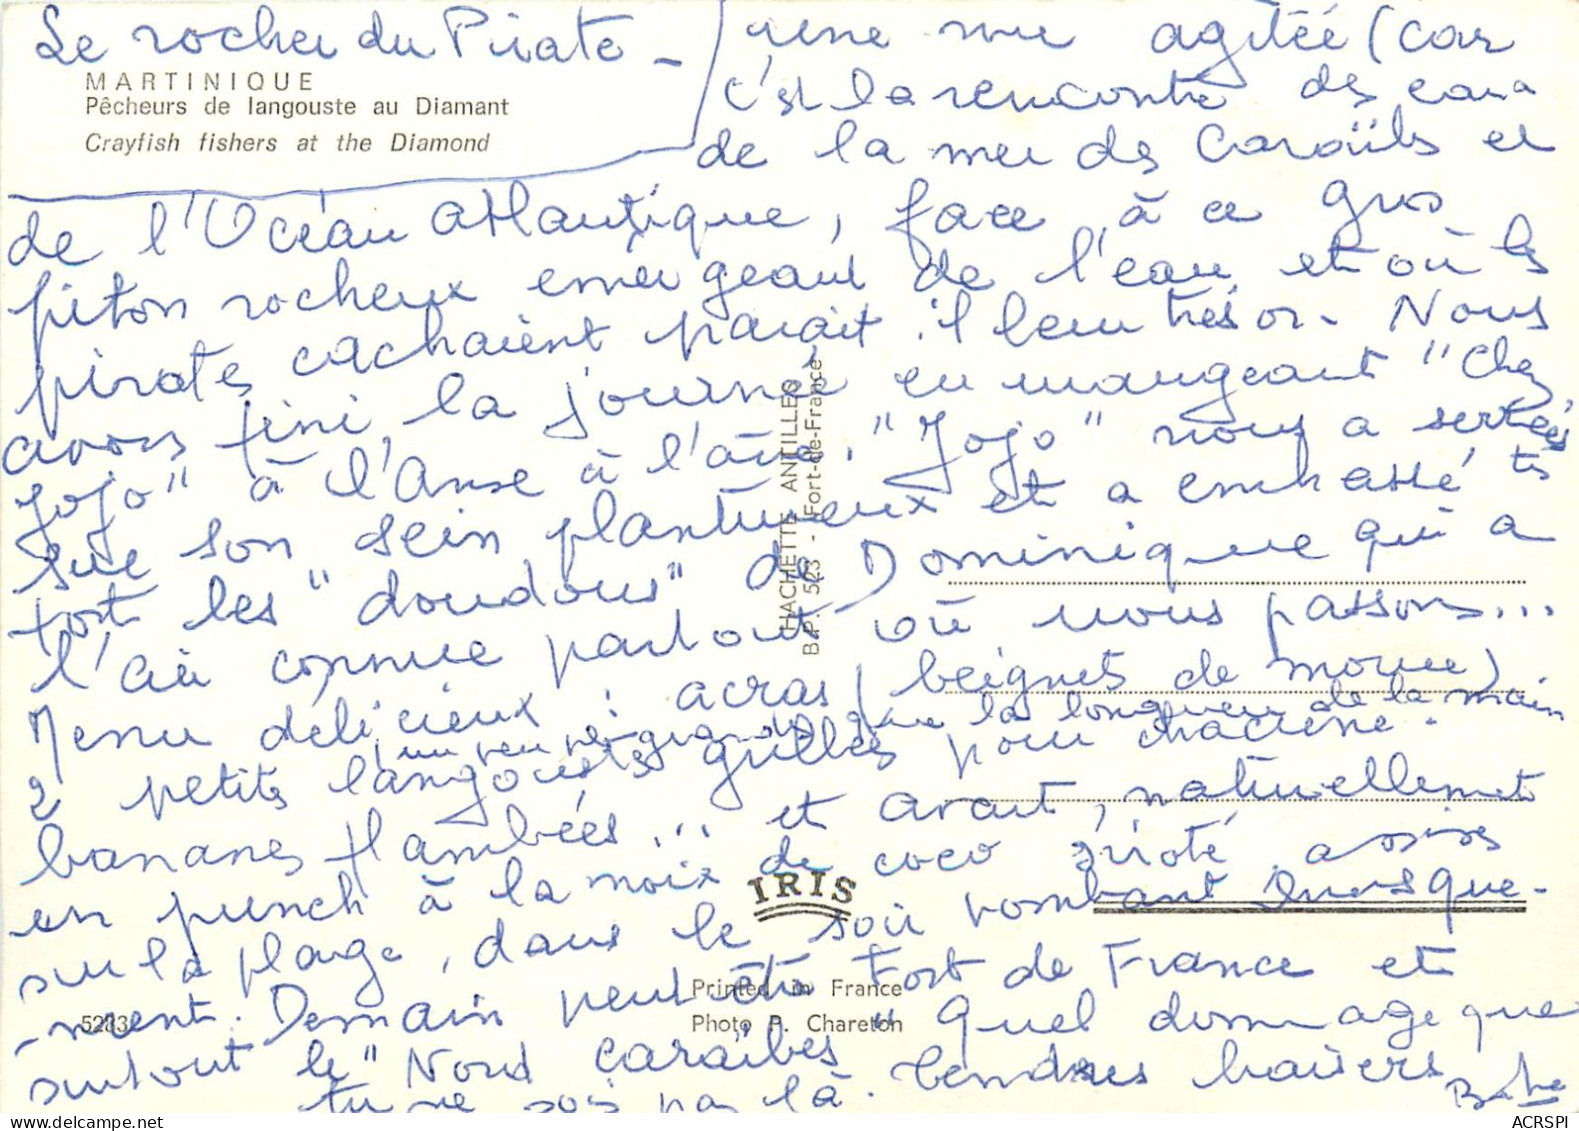 Le rocher du Pirate -
MARTINIQUE
Pêcheurs de langouste au Diamant
Crayfish fishers at the Diamond
une mer agitée (car
c'est la rencontre des eaux
de la mer des Caraïbes et
de l'Océan Atlantique, face à ce gros
piton rocheux emergeant de l'eau et où les
pirates cachaient paraît-il leur trésor. Nous
avons fini la journée en mangeant "Chez
Jojo" à l'Anse à l'âne. "Jojo" nous a serrées
sur son sein plantureux et a embrassé ts
fort les "doudous" de Dominique qui a
l'air connue partout où nous passons...
Menu délicieux : acras (beignets de morue)
(un peu + grandes que la longueur de la main
2 petites langoustes grillées pour chacune.
bananes flambées... et avant, naturellement
un punch à la noix de coco siroté assises
sur la plage, dans le soir tombant
-ment. Demain peut être Fort de France et
surtout le "Nord caraïbes" Quel dommage que
tu ne sois pas là. Tendres baisers
HACHETTE ANTILLES
B.P. 503 - Fort-de-France
IRIS
Printed in France
5283
Photo P. Chareton
ACRSPI